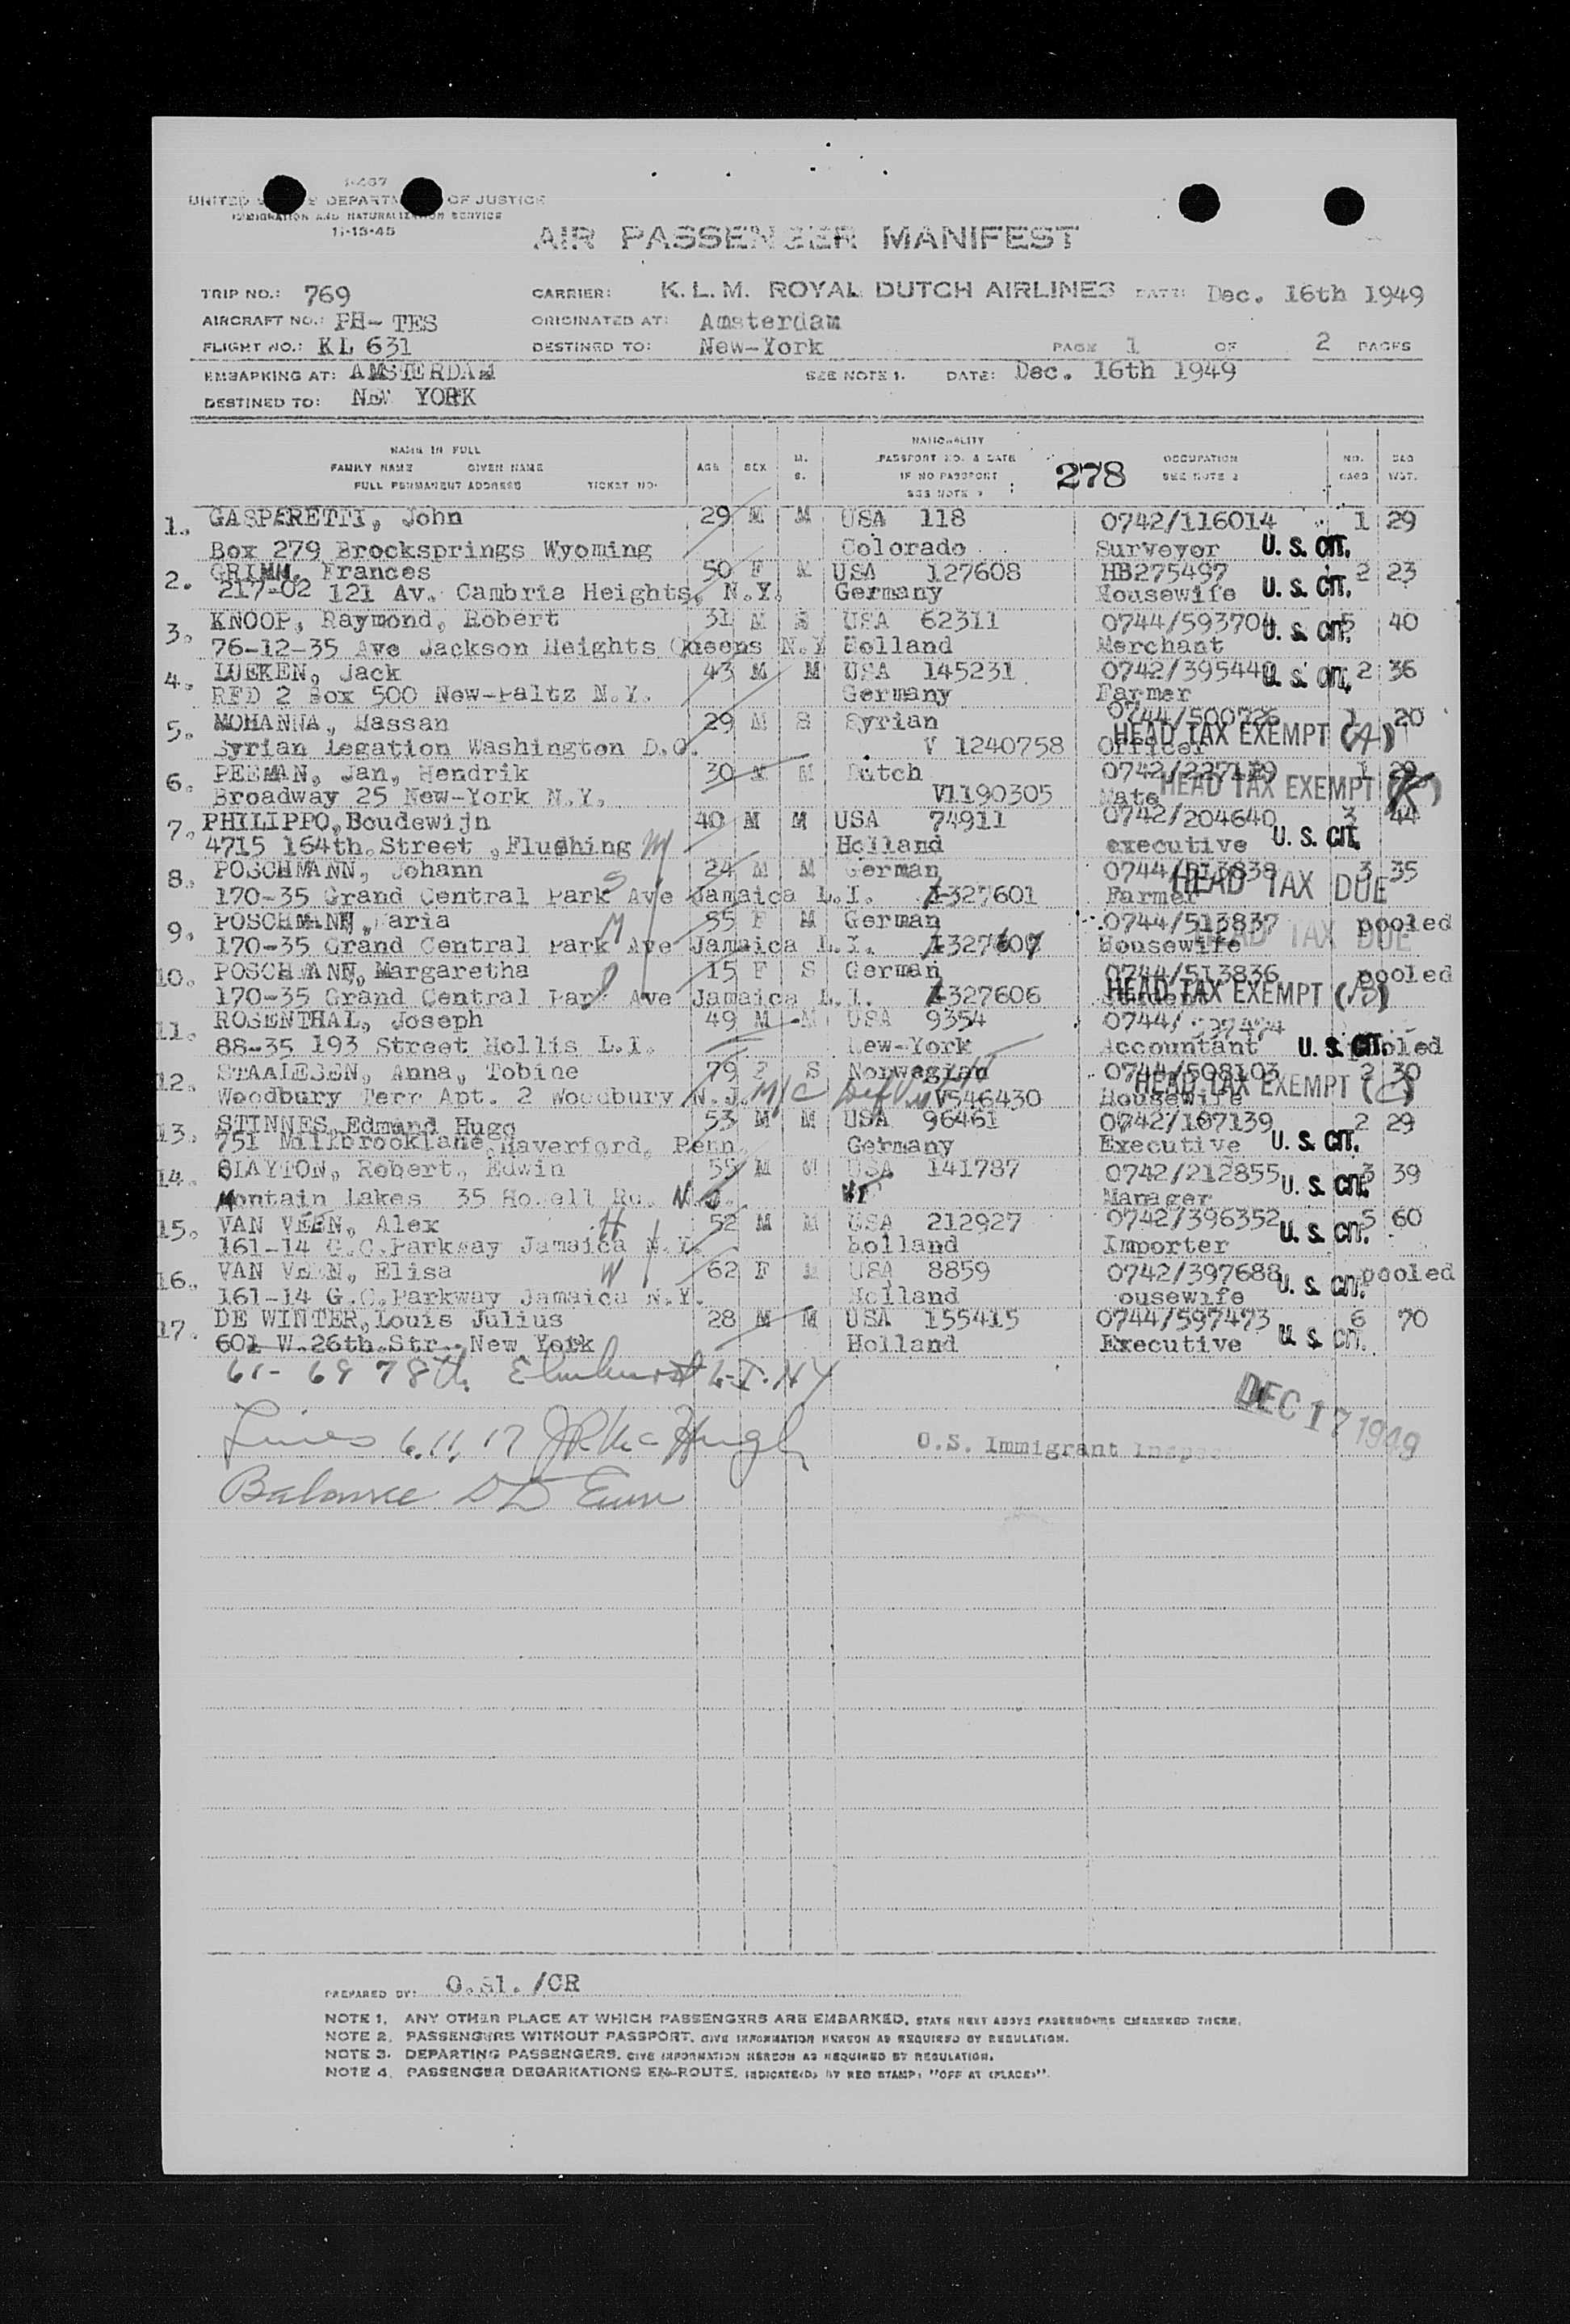 I-467
UNITED DEPARTM OF JUSTICE
IMMIGRATION AND NATURALIZATION SERVICE
11-15-45
AIR PASSENGER MANIFEST
TRIP NO.: 769 CARRIER: K. L. M. ROYAL DUTCH AIRLINES DATE: Dec. 16th 1949
AIRCRAFT NO.: PH- TES ORIGINATED AT: Amsterdam
FLIGHT NO.: KL 631 DESTINED TO: New-York PAGE 1 OF 2 PAGES
EMBARKING AT: AMSTERDAM SEE NOTE 1. DATE: Dec. 16th 1949
DESTINED TO: NEW YORK
NAME IN FULL
FAMILY NAME GIVEN NAME
FULL PERMANENT ADDRESS TICKET NO.
AGE SEX M. S.
NATIONALITY
PASSPORT NO. & DATE
IF NO PASSPORT
SEE NOTE
278
OCCUPATION
SEE NOTE 2
NO. BAGS
BAG WGT.
1. GASPARETTI, John 29 M M USA 118 0742/116014 1 29
Box 279 Brocksprings Wyoming Colorado Surveyor U. S. CIT.
2. GRIMM, Frances 50 F M USA 127608 HB275497 2 23
217-02 121 Av. Cambria Heights, N.Y. Germany Housewife U. S. CIT.
3. KNOOP, Raymond, Robert 31 M S USA 62311 0744/593704 U. S. CIT. 5 40
76-12-35 Ave Jackson Heights Queens N.Y Holland Merchant
4. LUEKEN, Jack 43 M M USA 145231 0742/395440 U. S. CIT. 2 36
RFD 2 Box 500 New-Paltz N.Y. Germany Farmer
5. MOHANNA, Hassan 29 M S Syrian 0744/500726 1 20
Syrian Legation Washington D.C. V 1240758 Officer HEAD TAX EXEMPT (A)
6. PEEMAN, Jan, Hendrik 30 M M Dutch 0742/227119 1 29
Broadway 25 New-York N.Y. V1190305 Mate HEAD TAX EXEMPT
7. PHILIPPO, Boudewijn 40 M M USA 74911 0742/204640 3 44
4715 164th. Street, Flushing M Holland executive U. S. CIT.
8. POSCHMANN, Johann 24 M M German 0744/513838 3 35
170-35 Grand Central Park Ave Jamaica L.I. 1327601 Farmer HEAD TAX DUE
9. POSCHMANN, Maria M 55 F M German 0744/513837 pooled
170-35 Grand Central Park Ave Jamaica L.I. 1327607 Housewife HEAD TAX DUE
10. POSCHMANN, Margaretha 15 F S German 0744/513836 pooled
170-35 Grand Central Park Ave Jamaica L.I. 1327606 Student HEAD TAX EXEMPT (B)
11. ROSENTHAL, Joseph 49 M M USA 9354 0744/
88-35 193 Street Hollis L.I. New-York Accountant U. S. CIT. pooled
12. STAALESEN, Anna, Tobine 79 F S Norwegian 0744/508103 2 30
Woodbury Terr Apt. 2 Woodbury N.J. V546430 Housewife HEAD TAX EXEMPT (C)
13. STINNES, Edmund Hugo 53 M M USA 96461 0742/107139 2 29
751 Millbrooklane, Haverford, Penn. Germany Executive U. S. CIT.
14. CLAYTON, Robert, Edwin 55 M M USA 141787 0742/212855 U. S. CIT. 3 39
Montain Lakes 35 Howell Rd. N.J. Manager
15. VAN VEEN, Alex H 52 M M USA 212927 0742/396352 U. S. CIT. 5 60
161-14 G.C.Parkway Jamaica N.Y. Holland Importer
16. VAN VEEN, Elisa W 62 F M USA 8859 0742/397688 U. S. CIT. pooled
161-14 G.C.Parkway Jamaica N.Y. Holland ousewife
17. DE WINTER, Louis Julius 28 M M USA 155415 0744/597473 6 70
601 W. 26th. Str. New York Holland Executive U. S. CIT.
61-69 78th Elmhurst L.I. NY
DEC 17 1949
Lines 6, 11, 17 J R McHugh U.S. Immigrant
Balance
PREPARED BY: O.Sl. /CR
NOTE 1. ANY OTHER PLACE AT WHICH PASSENGERS ARE EMBARKED, STATE NEXT ABOVE PASSENGERS EMBARKED THERE.
NOTE 2. PASSENGERS WITHOUT PASSPORT, GIVE INFORMATION HEREON AS REQUIRED BY REGULATION.
NOTE 3. DEPARTING PASSENGERS, GIVE INFORMATION HEREON AS REQUIRED BY REGULATION.
NOTE 4. PASSENGER DEBARKATIONS EN-ROUTE, INDICATE(D) BY RED STAMP: "OFF AT (PLACE)".